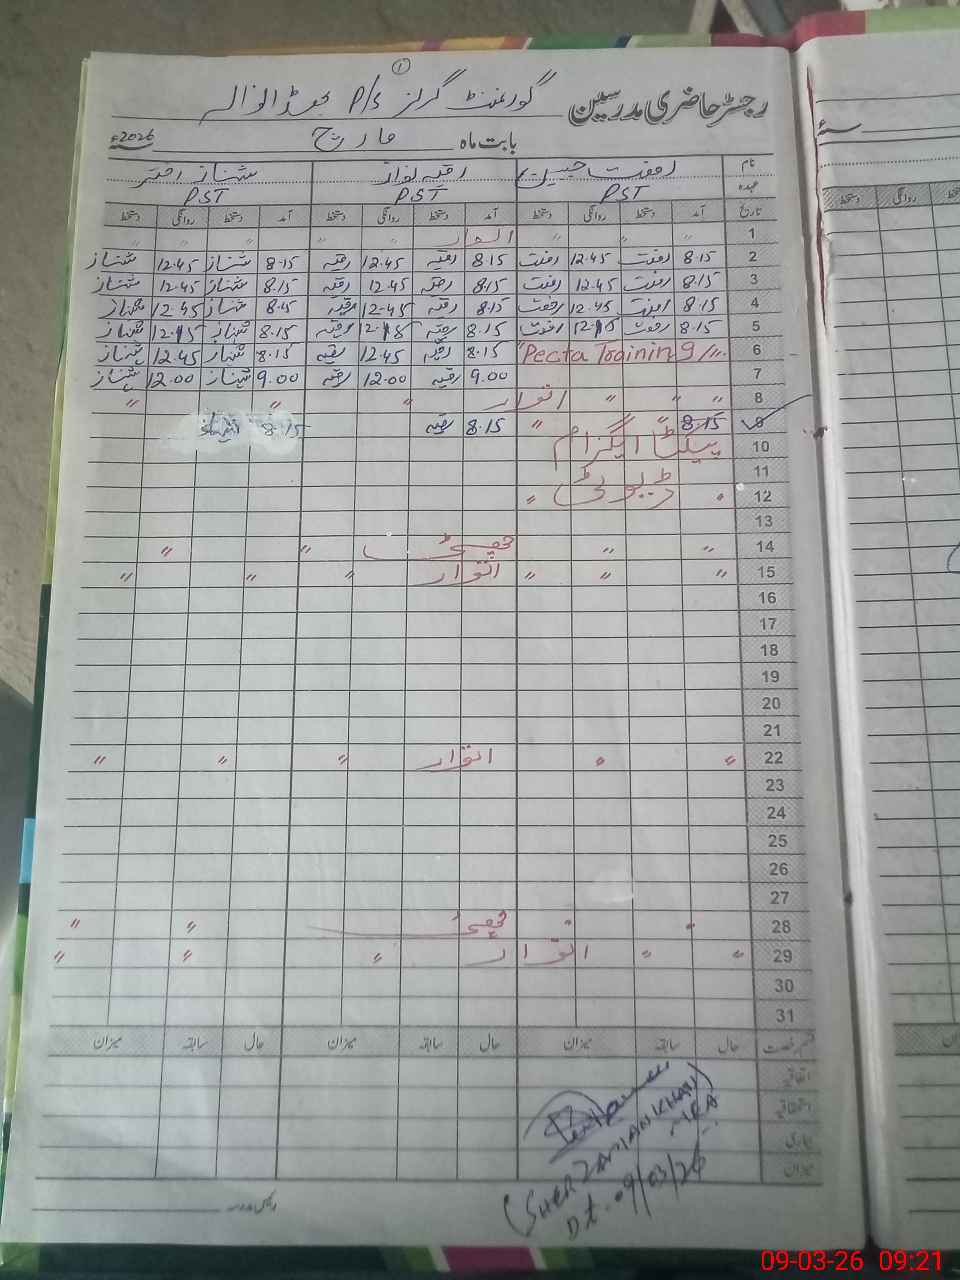 ①
رجسٹر حاضری مدرسین گورنمنٹ گرلز P/S
بابت ماہ مارچ 2026ء
نام رفعت جبین رقیہ نواز شہناز اختر
عہدہ PST PST PST
تاریخ آمد دستخط روانگی دستخط آمد دستخط روانگی دستخط آمد دستخط روانگی دستخط
1 〃 〃 〃 اتوار 〃 〃 〃 〃 〃
2 8.15 رفعت 12.45 رفعت 8.15 رقیہ 12.45 رقیہ 8.15 شہناز 12.45 شہناز
3 8.15 رفعت 12.45 رفعت 8.15 رقیہ 12.45 رقیہ 8.15 شہناز 12.45 شہناز
4 8.15 رفعت 12.45 رفعت 8.15 رقیہ 12.45 رقیہ 8.15 شہناز 12.45 شہناز
5 8.15 رفعت 12.15 رفعت 8.15 رقیہ 12.15 رقیہ 8.15 شہناز 12.15 شہناز
6 "Pecta Training 〃 8.15 رقیہ 12.45 رقیہ 8.15 شہناز 12.45 شہناز
7 9.00 رقیہ 12.00 رقیہ 9.00 شہناز 12.00 شہناز
8 〃 〃 〃 اتوار 〃 〃 〃
9 8.15 〃 8.15 رقیہ 8.15 شہناز
10 پیکٹا ایگزام
11 ڈیوٹی
12 〃 〃
13
14 〃 〃 چھٹی 〃 〃
15 〃 〃 〃 اتوار 〃 〃 〃
16
17
18
19
20
21
22 〃 〃 اتوار 〃 〃 〃
23
24
25
26
27
28 〃 〃 چھٹی 〃 〃
29 〃 〃 اتوار 〃 〃 〃
30
31
قسم رخصت حال سابقہ میزان حال سابقہ میزان حال سابقہ میزان
اتفاقیہ
استحقاقیہ
بیماری
میزان
(SHER ZAMAN KHAN)
MEA
Dt. 09/03/26
رئیس مدرسہ
دستخط روانگی دستخط
09-03-26 09:21